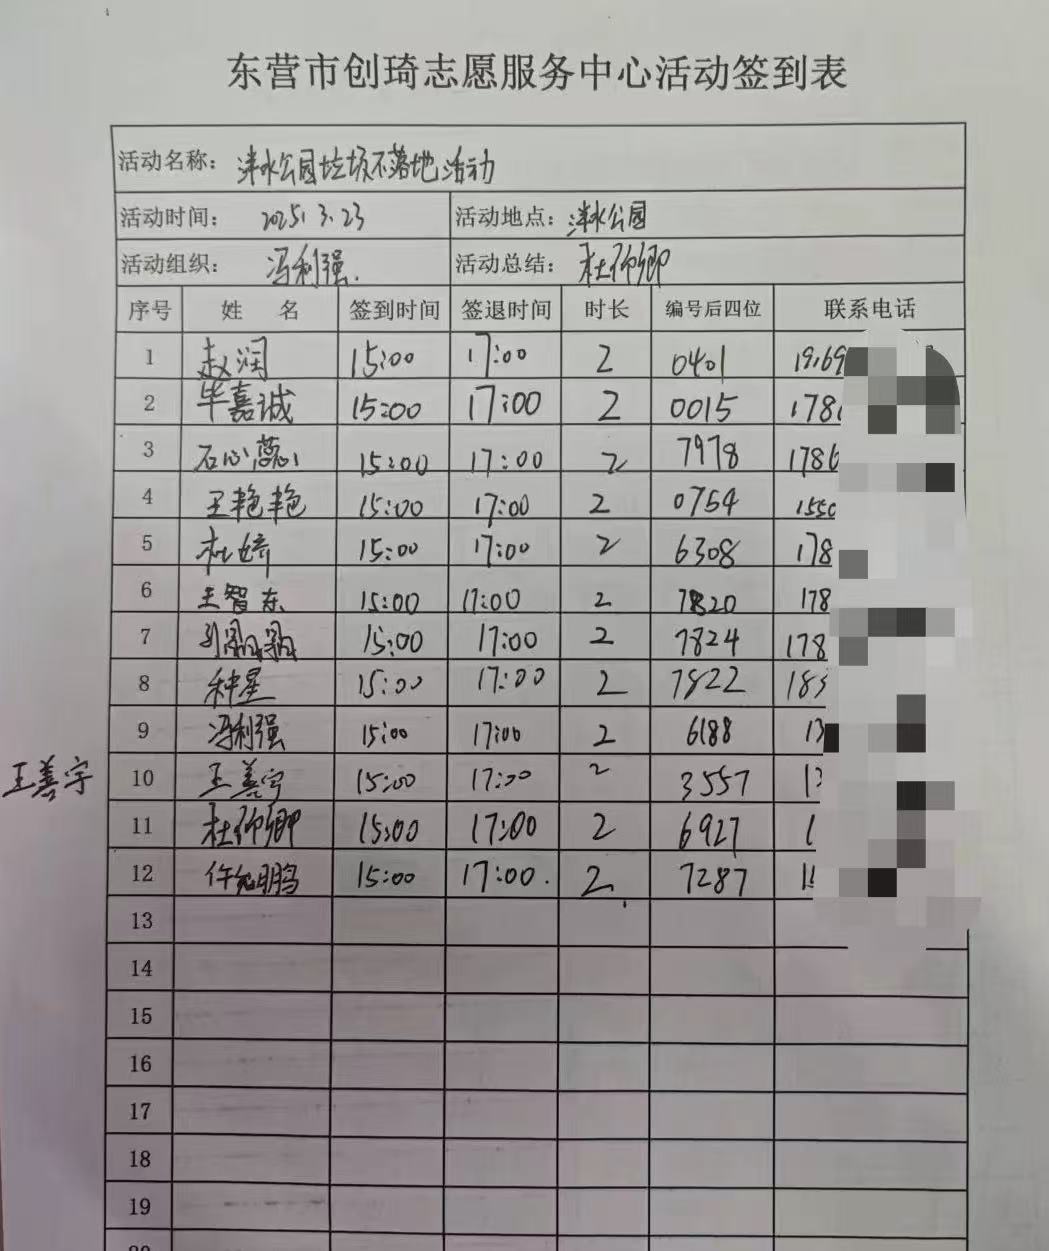 东营市创琦志愿服务中心活动签到表
活动名称： 洋水公园垃圾不落地活动
活动时间： 2025.3.23 活动地点： 洋水公园
活动组织： 冯利强. 活动总结： 杜仰卿
序号 姓 名 签到时间 签退时间 时长 编号后四位 联系电话
1 赵润 15:00 17:00 2 0401
2 毕嘉诚 15:00 17:00 2 0015 178
3 石心蕊 15:00 17:00 2 7978 1786
4 王艳艳 15:00 17:00 2 0754 1550
5 杜婷 15:00 17:00 2 6308 178
6 王智东 15:00 17:00 2 7820 178
7 15:00 17:00 2 7824 178
8 种星 15:00 17:00 2 7822
9 冯利强 15:00 17:00 2 6188 13
王善宇 10 王善宇 15:00 17:00 2 3557
11 杜仰卿 15:00 17:00 2 6927
12 15:00 17:00. 2 7287
13
14
15
16
17
18
19